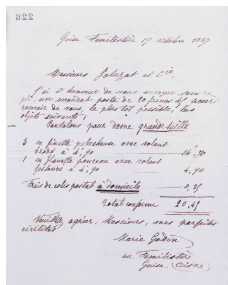 322
Guise Familistère 17 octobre 1889
Messieurs Jaluzot et Cie,
J'ai l'honneur de vous envoyer sous ce
pli, une mandat poste de 20 francs 45 pour
recevoir de vous, le plus tôt possible, les
objets suivants :
Pantalons pour dame grande taille
3 en finette pelucheuse avec volant
brodé à 4,90 14,70
1 en flanelle ponceau avec volant
4,90
Frais de colis postal à domicile 0,85
Total conforme 20,45
Veuillez agréer, Messieurs, mes parfaites
civilités
Marie Godin
au Familistère
Guise (Aisne)